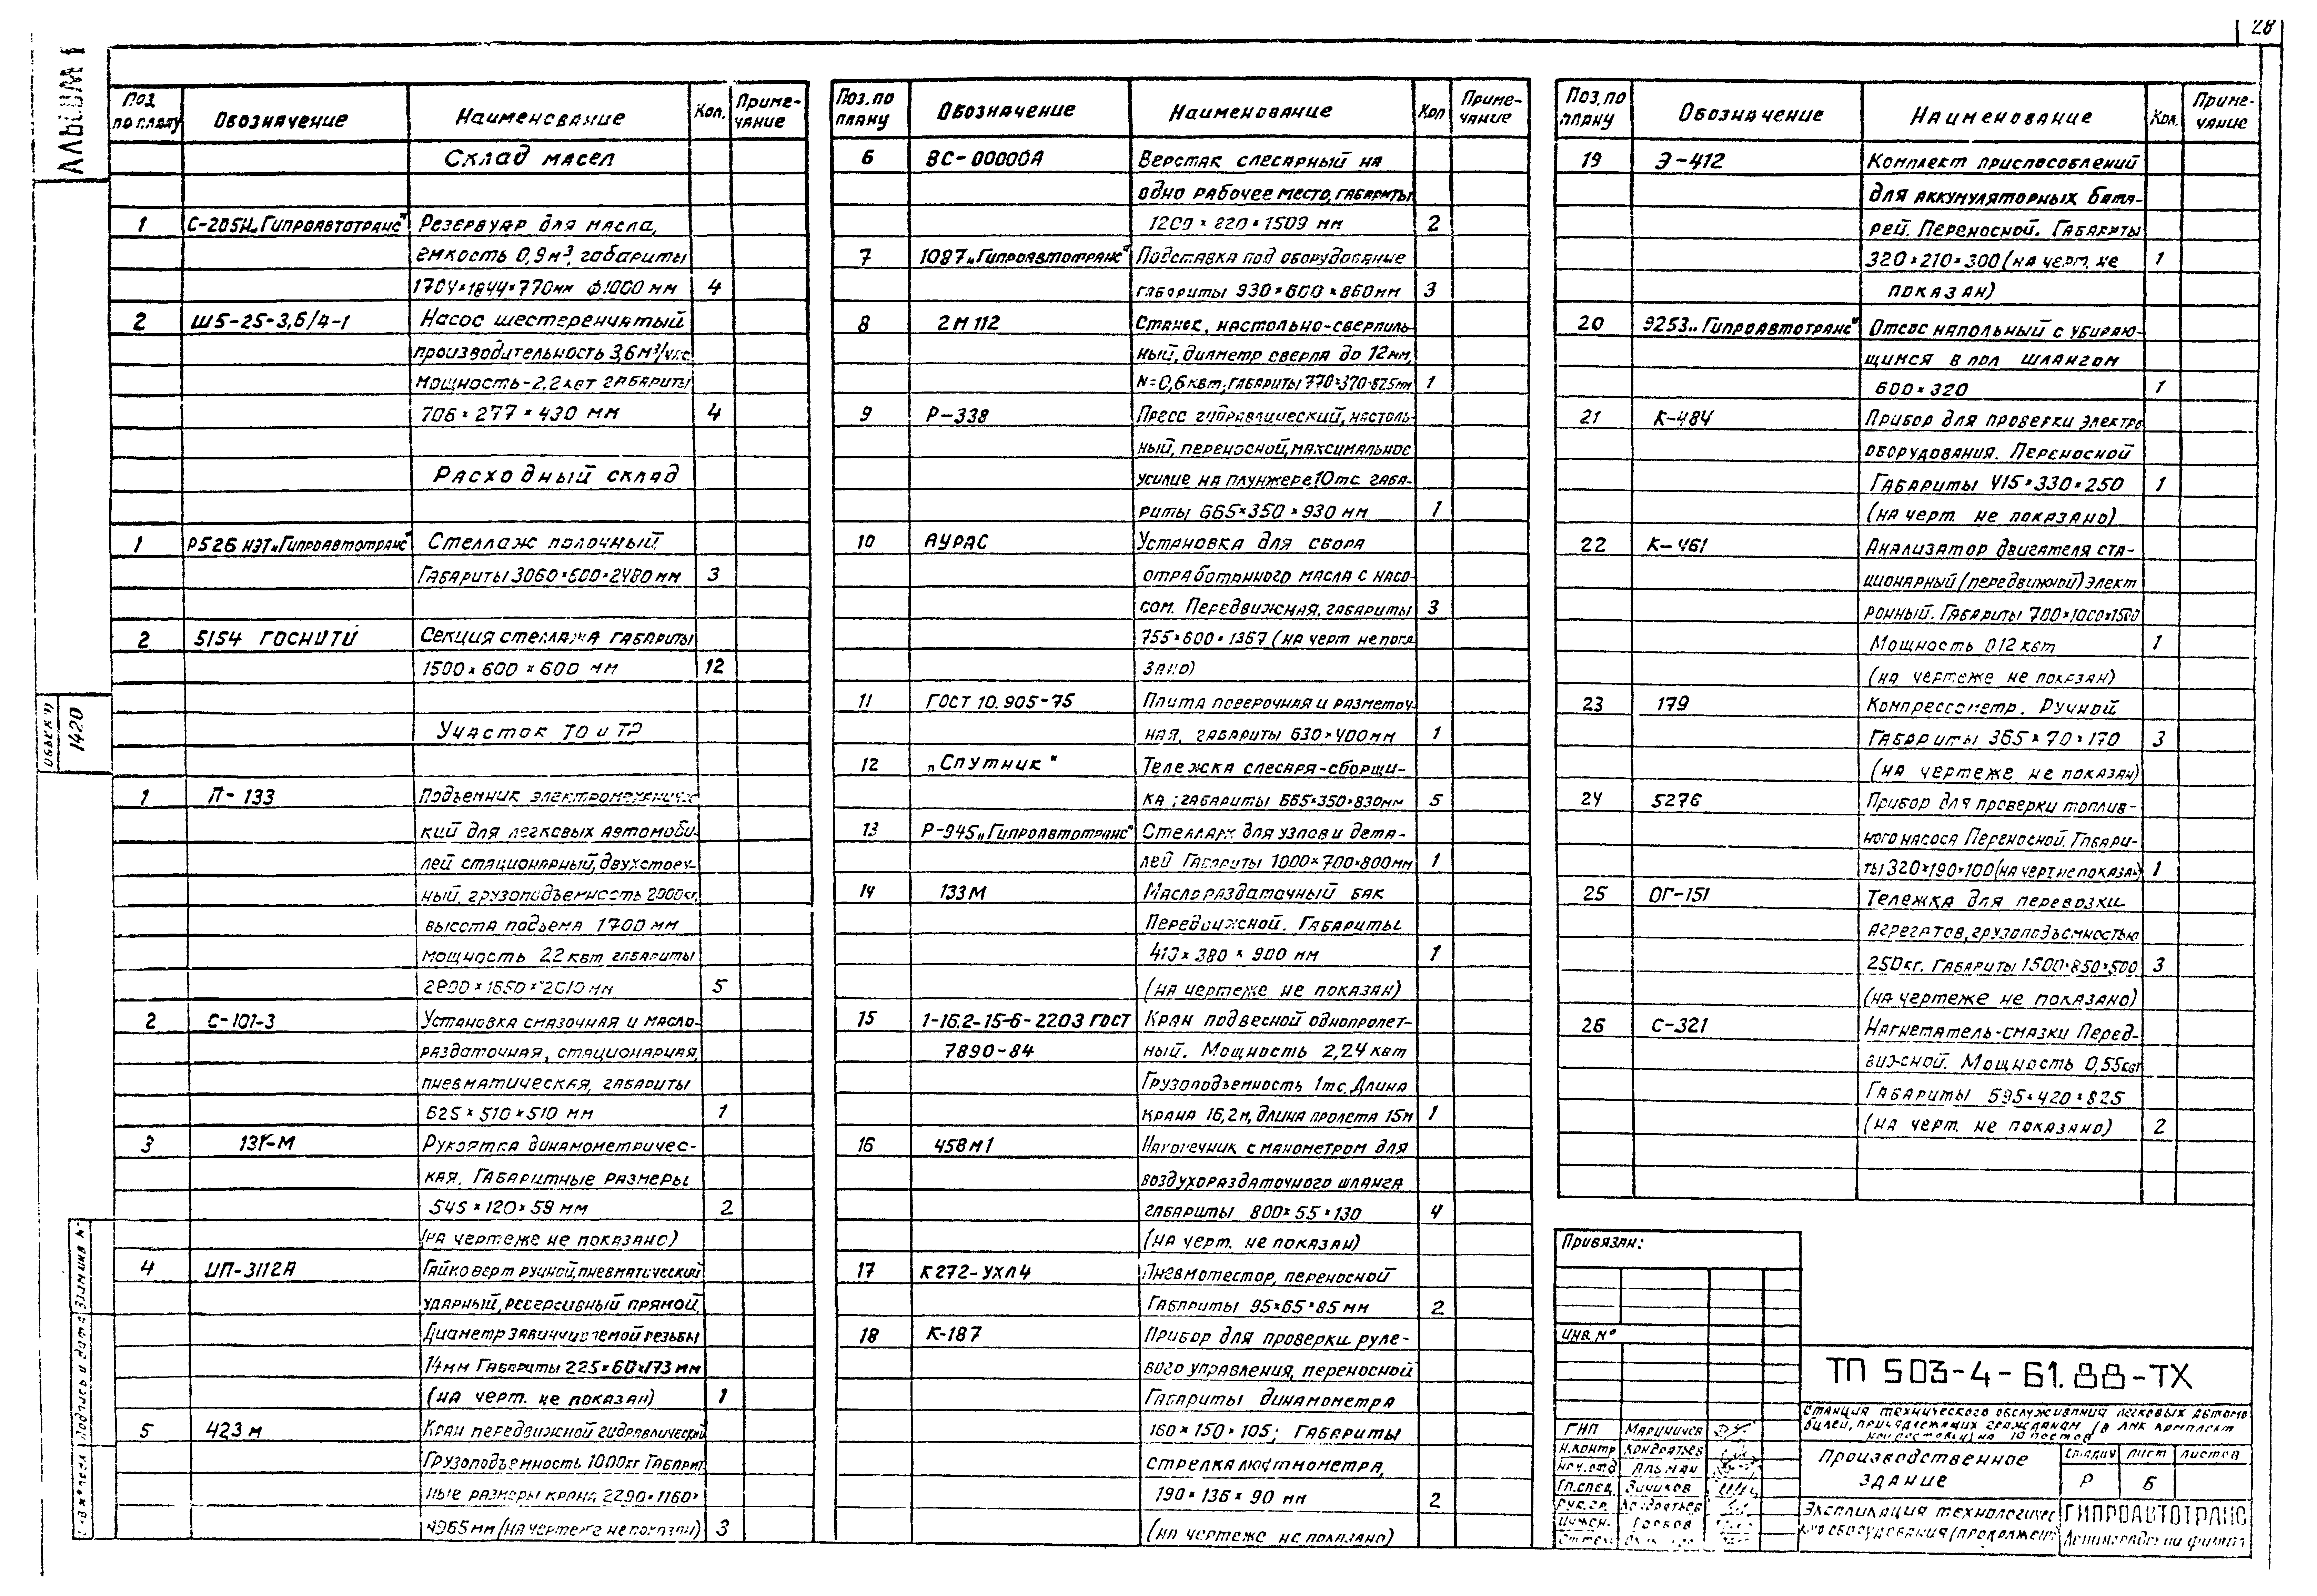 28
АЛЬБОМ 1
Поз. по плану Обозначение Наименование Кол. Приме-чание
Склад масел
1 С-205Н „Гипроавтотранс" Резервуар для масла,
емкость 0,9м³, габариты
1704×1844×770мм ф1000 мм 4
2 Ш5-25-3,6/4-1 Насос шестеренчатый
производительность 3,6м³/час
мощность-2,2квт габариты
706×277×430 мм 4
Расходный склад
1 Р526 НЭТ „Гипроавтотранс" Стеллаж полочный
Габариты 3060×500×2480мм 3
2 5154 ГОСНИТИ Секция стеллажа габариты
1500×600×600 мм 12
Участок ТО и ТР
1 П-133 Подъемник электромеханичес
кий для легковых автомоби-
лей стационарный, двухстоеч-
ный, грузоподъемность 2000кг,
высота подъема 1700 мм
мощность 22 квт габариты
2800×1650×2610мм 5
2 С-101-3 Установка смазочная и масло-
раздаточная, стационарная,
пневматическая, габариты
625×510×510 мм 1
3 131-М Рукоятка динамометричес-
кая. Габаритные размеры
545×120×59 мм 2
(на чертеже не показано)
4 ИП-3112А Гайковерт ручной, пневматический
ударный, реверсивный прямой.
Диаметр завинчиваемой резьбы
14мм Габариты 225×60×173 мм
(на черт. не показан) 1
5 423 м Кран передвижной гидравлический
Грузоподъемность 1000кг Габарит
ные размеры крана 2290×1160×
1965мм (на чертеже не показан) 3
Поз. по плану Обозначение Наименование Кол Приме-чание
6 ВС-00000А Верстак слесарный на
одно рабочее место, габариты
1200×820×1509 мм 2
7 1087 „Гипроавтотранс" Подставка под оборудование
габариты 930×600×860мм 3
8 2М112 Станок, настольно-сверлиль
ный, диаметр сверла до 12мм,
N=0,6квт, габариты 770×370×825мм 1
9 Р-338 Пресс гидравлический, настоль-
ный, переносной, максимальное
усилие на плунжере 10тс. габа-
риты 665×350×930 мм 1
10 АУРАС Установка для сбора
отработанного масла с насо-
сом. Передвижная, габариты 3
755×600×1367 (на черт не пока
зано)
11 ГОСТ 10.905-75 Плита поверочная и разметоч
ная, габариты 630×400мм 1
12 „Спутник" Тележка слесаря-сборщи-
ка; габариты 665×350×830мм 5
13 Р-945 „Гипроавтотранс" Стеллаж для узлов и дета-
лей Габариты 1000×700×800мм 1
14 133М Маслораздаточный бак
Передвижной. Габариты
413×380×900 мм 1
(на чертеже не показан)
15 1-16.2-15-6-2203 ГОСТ Кран подвесной однопролет-
7890-84 ный. Мощность 2,24 квт
Грузоподъемность 1тс. Длина
крана 16,2м, длина пролета 15м 1
16 458м1 Наконечник с манометром для
воздухораздаточного шланга
габариты 800×55×130 4
(на черт. не показан)
17 К272-УХЛ4 Пневмотестор, переносной
Габариты 95×65×85мм 2
18 К-187 Прибор для проверки руле-
вого управления, переносной
Габариты динамометра
160×150×105; Габариты
стрелка люфтнометра,
190×136×90 мм 2
(на чертеже не показано)
Поз. по плану Обозначение Наименование Кол. Приме-чание
19 Э-412 Комплект приспособлений
для аккумуляторных бата-
рей. Переносной. Габариты
320×210×300 (на черт. не 1
показан)
20 9253 „Гипроавтотранс" Отсос напольный с убираю-
щимся в пол шлангом
600×320 1
21 К-484 Прибор для проверки электро
оборудования. Переносной
Габариты 415×330×250 1
(на черт. не показано)
22 К-461 Анализатор двигателя ста-
ционарный (передвижной) элект
ронный. Габариты 700×1000×1500
Мощность 012 квт 1
(на чертеже не показан)
23 179 Компрессометр. Ручной
Габариты 365×70×170 3
(на чертеже не показан)
24 5276 Прибор для проверки топлив-
ного насоса Переносной. Габари-
ты 320×190×100 (на черт не показан) 1
25 ОГ-151 Тележка для перевозки
агрегатов, грузоподъемностью
250кг. Габариты 1500×850×500 3
(на чертеже не показано)
26 С-321 Нагнетатель-смазки Перед-
вижной. Мощность 0,55квт
Габариты 595×420×825
(на черт. не показано) 2
Привязан:
Инв. №
ТП 503-4-61.88-ТХ
Станция технического обслуживания легковых автомо
билей, принадлежащих гражданам (в ЛМК комплект
ной поставки) на 10 постов
Производственное здание
Стадия Лист Листов
Р 6
Экспликация технологичес
кого оборудования (продолжение)
ГИПРОАВТОТРАНС
Ленинградский филиал
ГИП Мариничев
Н.контр Кондратьев
Нач.отд Альман
Гл.спец. Зичиков
Рук.гр. Кондратьев
Инжен. Горбов
Объект
1420
Взамин №
Подпись и дата